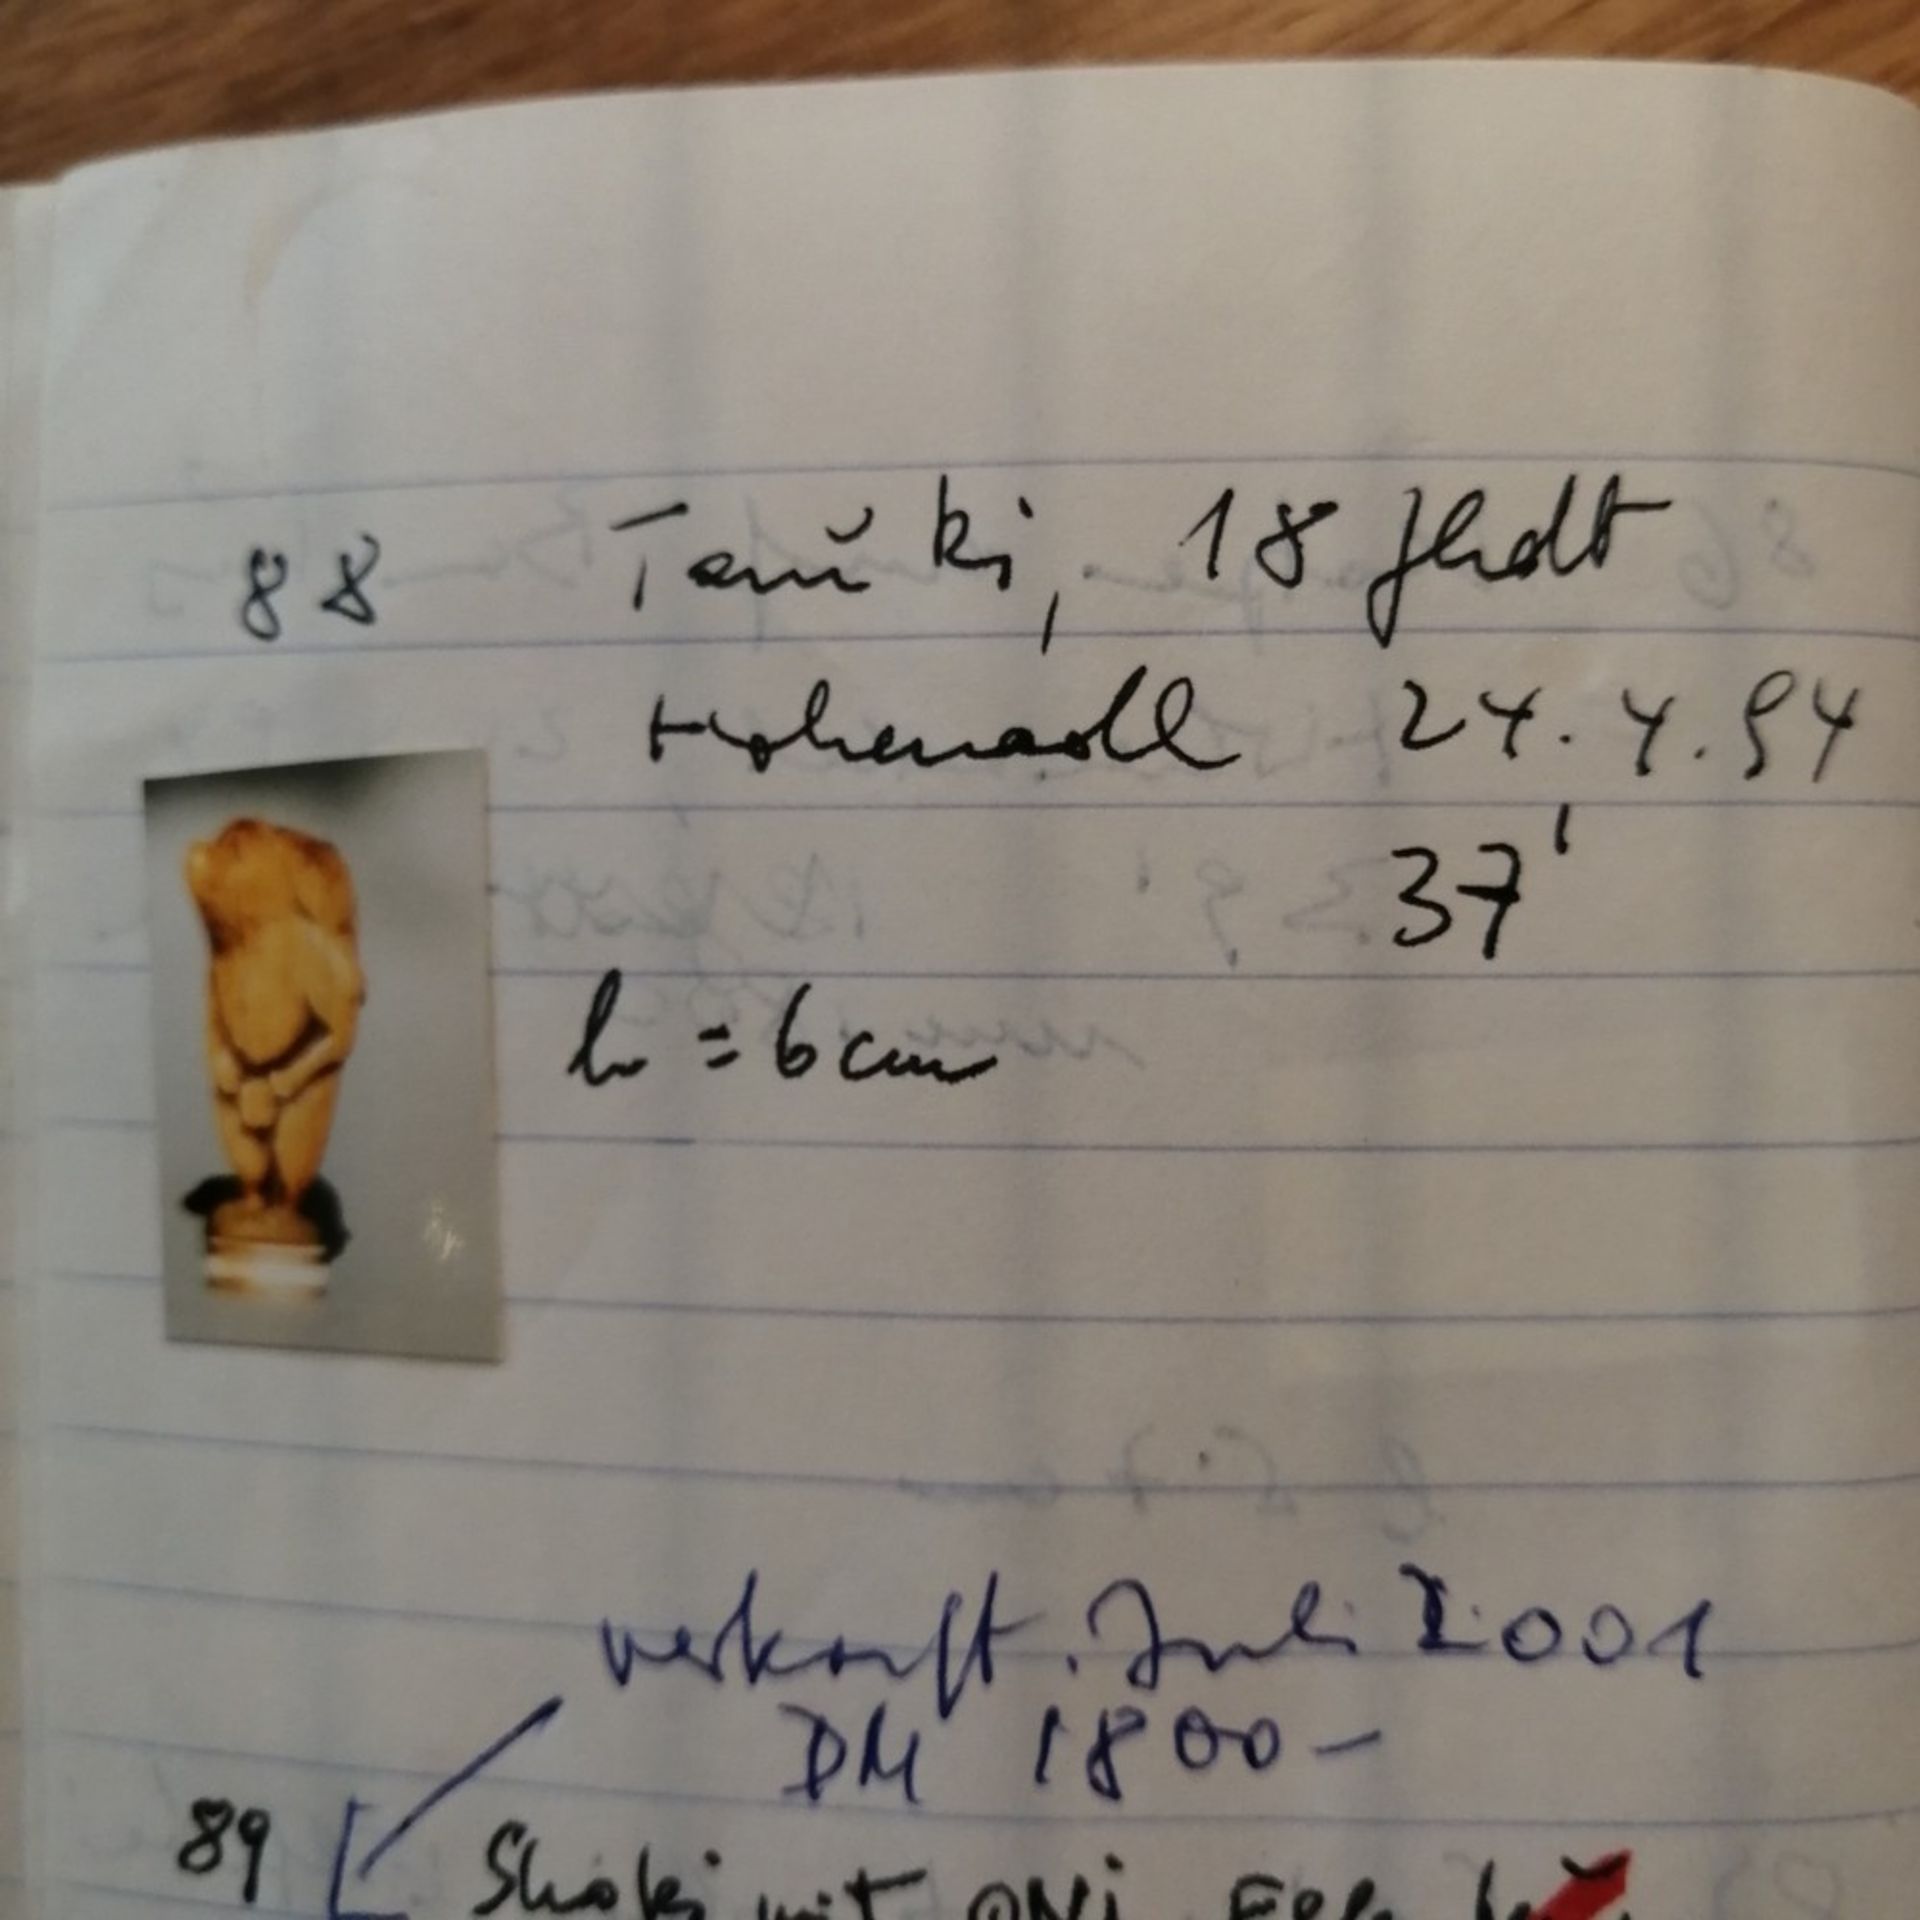 88 Tanŭki, 18 Jhdt
24.4.94
37'
h = 6 cm
verkauft. Juli 2001
DM 1800-
89 Shoki mit ONi